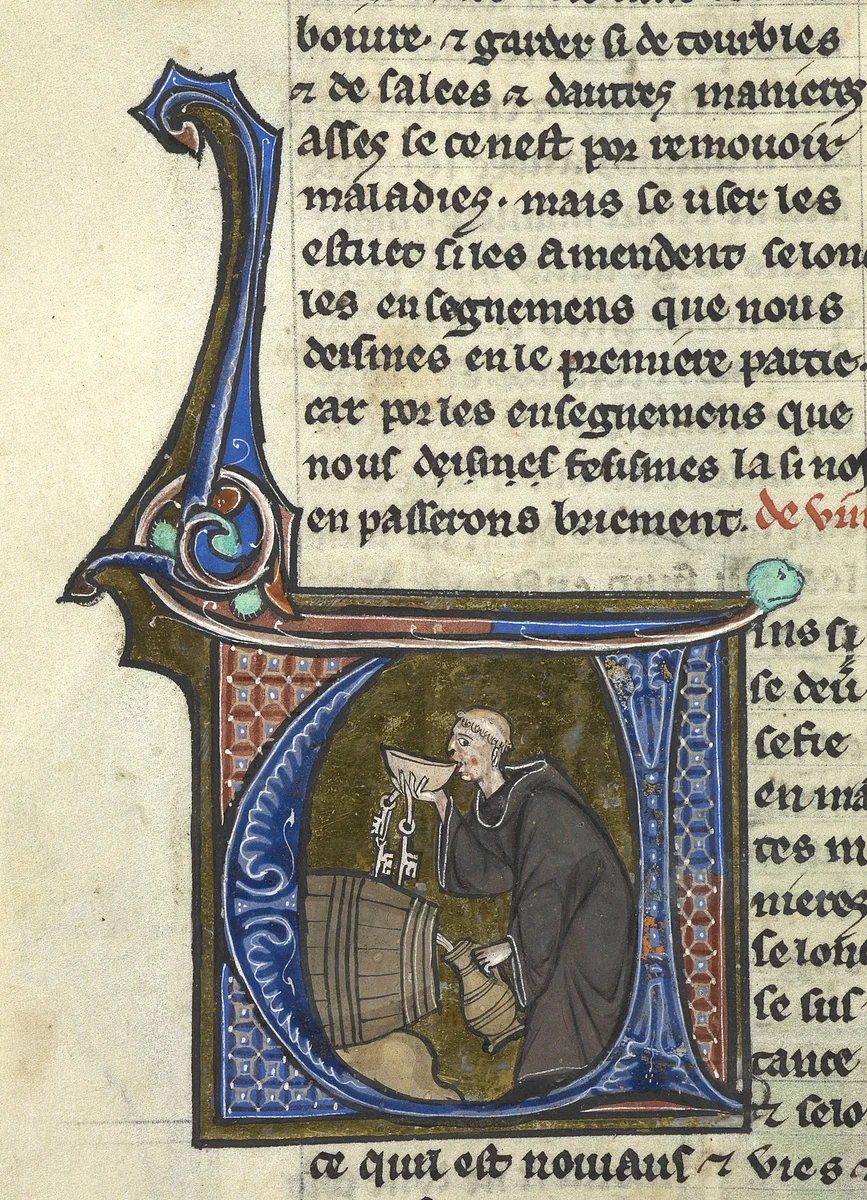 boiure· ⁊ garder si de tourbles
⁊ de salees ⁊ dautres manieres
asses se ce nest por remouoir
maladies· mais se user les
estuet si les amendent selonc
les ensegnemens que nous
deismes en le premiere partie·
car por les ensegnemens que
nous deismes fesismes la si nos
en passerons briement· de vin
ins si
se deu
sefie
en ma
tes m
nieres
selonc
se sus
tance
⁊ selo
ce quil est nouiaus ⁊ vies